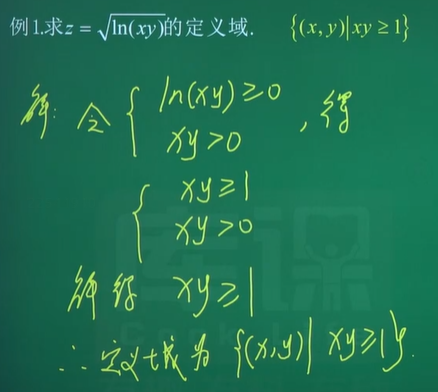 例1.求z = √ln(xy)的定义域. {(x, y)|xy ≥ 1}
解: 令 { ln(xy) ≥ 0
xy > 0 , 得
{ xy ≥ 1
xy > 0
解得 xy ≥ 1
∴ 定义域为 {(x,y)| xy ≥ 1}.